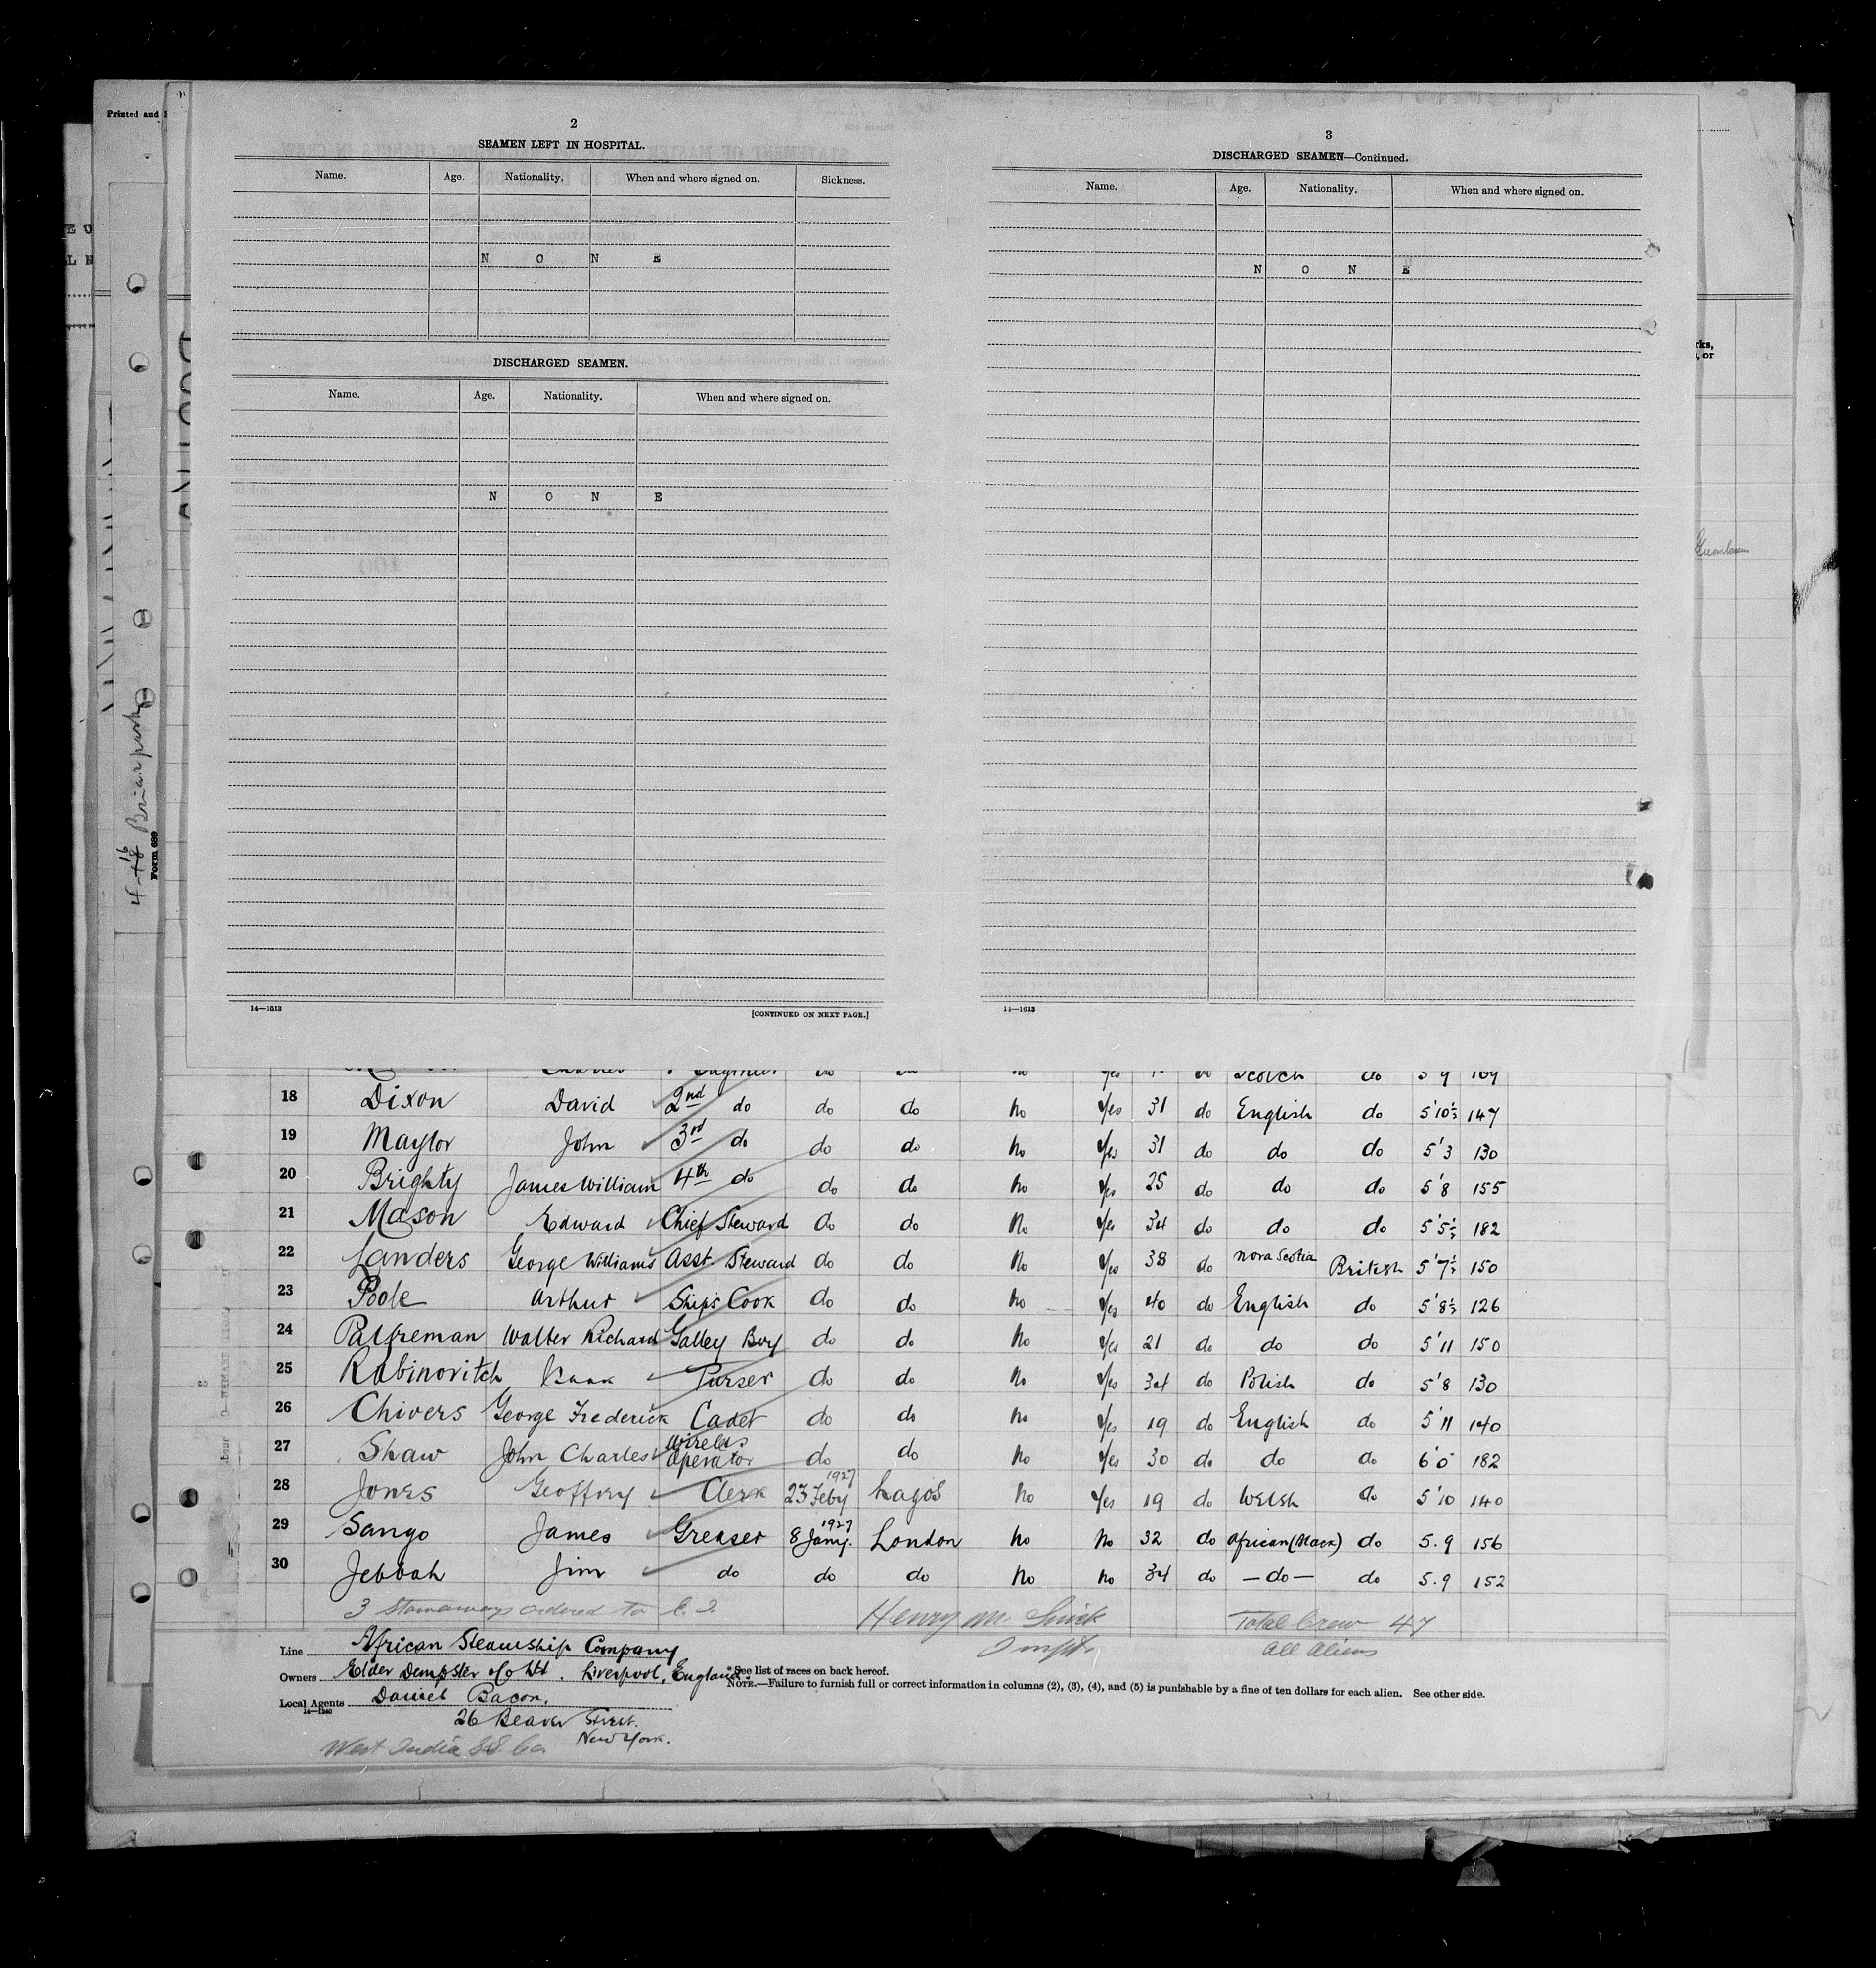 Printed and
2
SEAMEN LEFT IN HOSPITAL.
Name. Age. Nationality. When and where signed on. Sickness.
N O N E
DISCHARGED SEAMEN.
Name. Age. Nationality. When and where signed on.
N O N E
14—1613 [CONTINUED ON NEXT PAGE.]
3
DISCHARGED SEAMEN—Continued.
Name. Age. Nationality. When and where signed on.
N O N E
14—1613
Briarpark
Form 689
18 Dixon David 2nd do do do No Yes 31 do English do 5'10½ 147
19 Maylor John 3rd do do do No Yes 31 do do do 5'3 130
20 Brighty James William 4th do do do No Yes 25 do do do 5'8 155
21 Mason Edward Chief Steward do do No Yes 34 do do do 5'5½ 182
22 Landers George Williams Asst. Steward do do No Yes 38 do Nova Scotia British 5'7½ 150
23 Poole Arthur Ship's Cook do do No Yes 40 do English do 5'8½ 126
24 Palfreman Walter Richard Galley Boy do do No Yes 21 do do do 5'11 150
25 Rabinovitch Isaak Purser do do No Yes 34 do Polish do 5'8 130
26 Chivers George Frederick Cadet do do No Yes 19 do English do 5'11 140
27 Shaw John Charles Wireless Operator do do No Yes 30 do do do 6'0 182
28 Jones Geoffrey Clerk 23 Feby 1927 Lagos No Yes 19 do Welsh do 5'10 140
29 Sango James Greaser 8 Jany. 1927 London No No 32 do African (Black) do 5.9 156
30 Jebbah Jim do do do No No 34 do —do— do 5.9 152
3 Stowaways ordered to E. I. Henry M. Total Crew 47
All Aliens
Line African Steamship Company
Owners Elder Dempster & Co Ltd. Liverpool, England
* See list of races on back hereof.
NOTE.—Failure to furnish full or correct information in columns (2), (3), (4), and (5) is punishable by a fine of ten dollars for each alien. See other side.
Local Agents Daniel Bacon.
14—1240
26 Beaver Street.
New York.
West India S.S. Co.